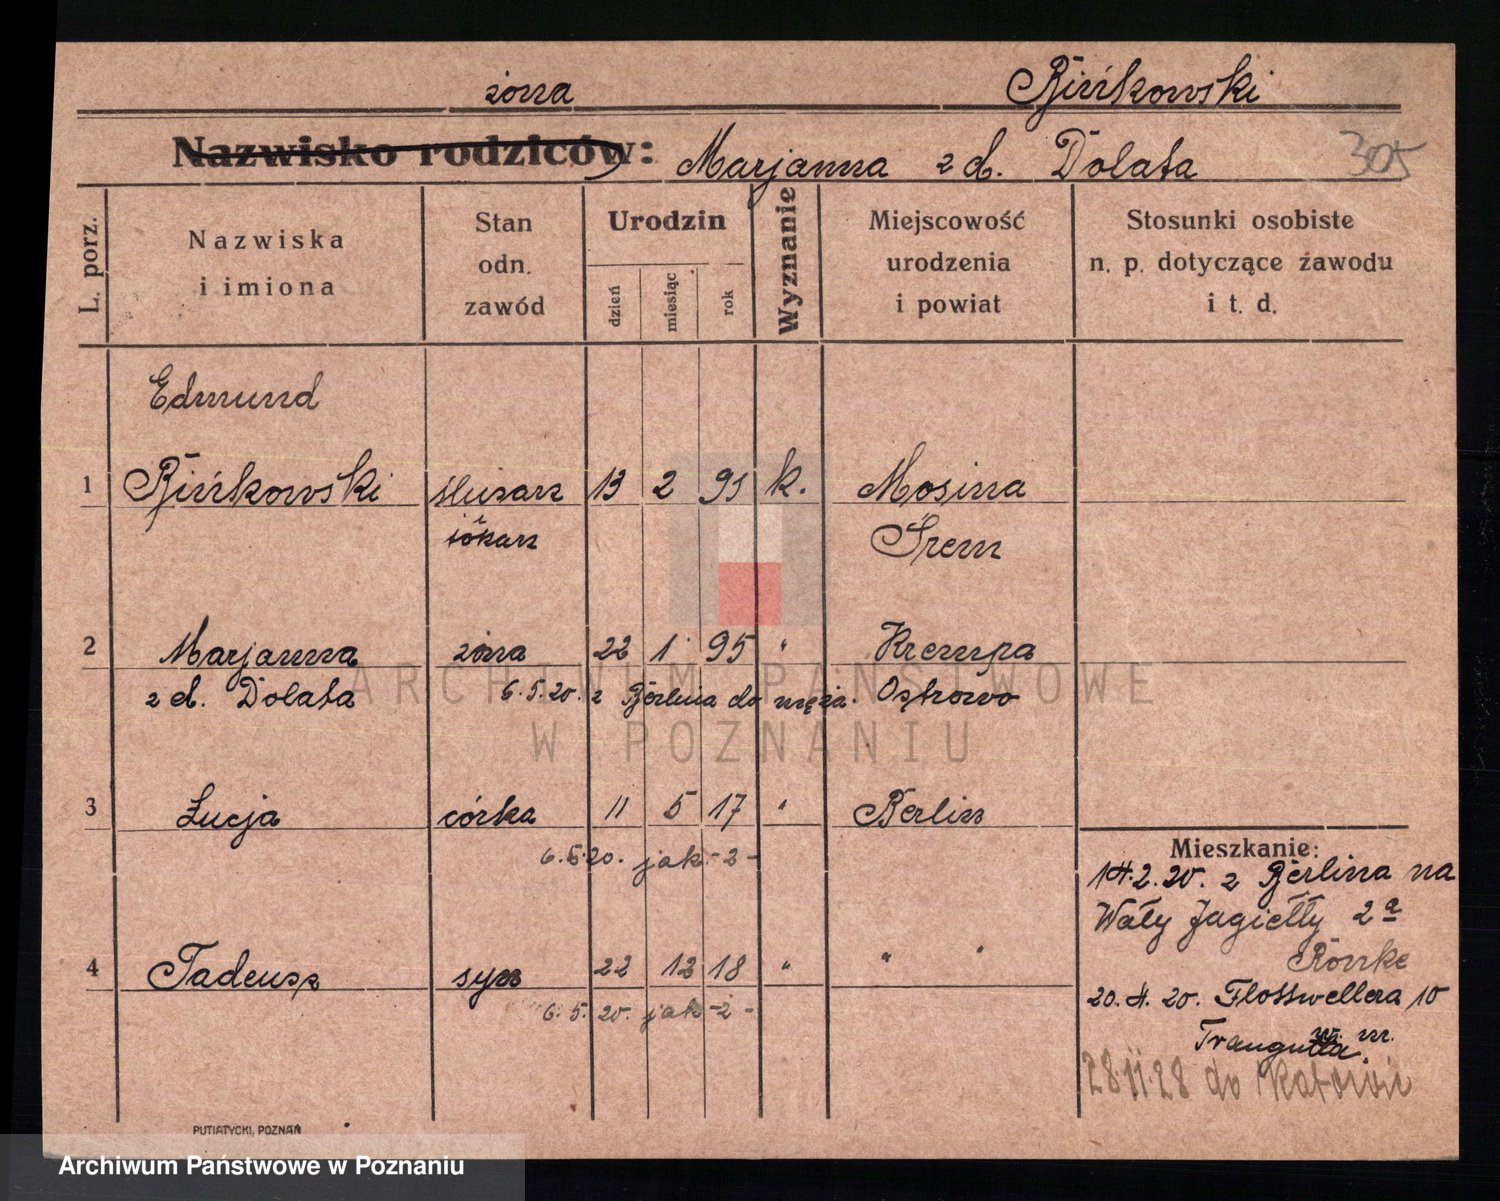 żona Bińkowski
Nazwisko rodziców: Marjanna z d. Dolata 305
L. porz.
Nazwiska i imiona
Stan odn. zawód
Urodzin
dzień miesiąc rok
Wyznanie
Miejscowość urodzenia i powiat
Stosunki osobiste n. p. dotyczące zawodu i t. d.
Edmund
1 Bińkowski ślusarz 13 2 91 k. Mosina
tokarz Śrem
2 Marjanna żona 22 1 95 " Krempa
z d. Dolata 6.5.20. z Berlina do męża. Ostrowo
3 Łucja córka 11 5 17 " Berlin
6.5.20. jak -2-
4 Tadeusz syn 22 12 18 " " "
6.5.20. jak -2-
Mieszkanie:
14.2.20. z Berlina na
Wały Jagiełły 2a
Rönke
20.4.20. Flottwellera 10
Traugutta m.
28.11.28 do
PUTIATYCKI, POZNAŃ
ARCHIWUM PAŃSTWOWE
W POZNANIU
Archiwum Państwowe w Poznaniu